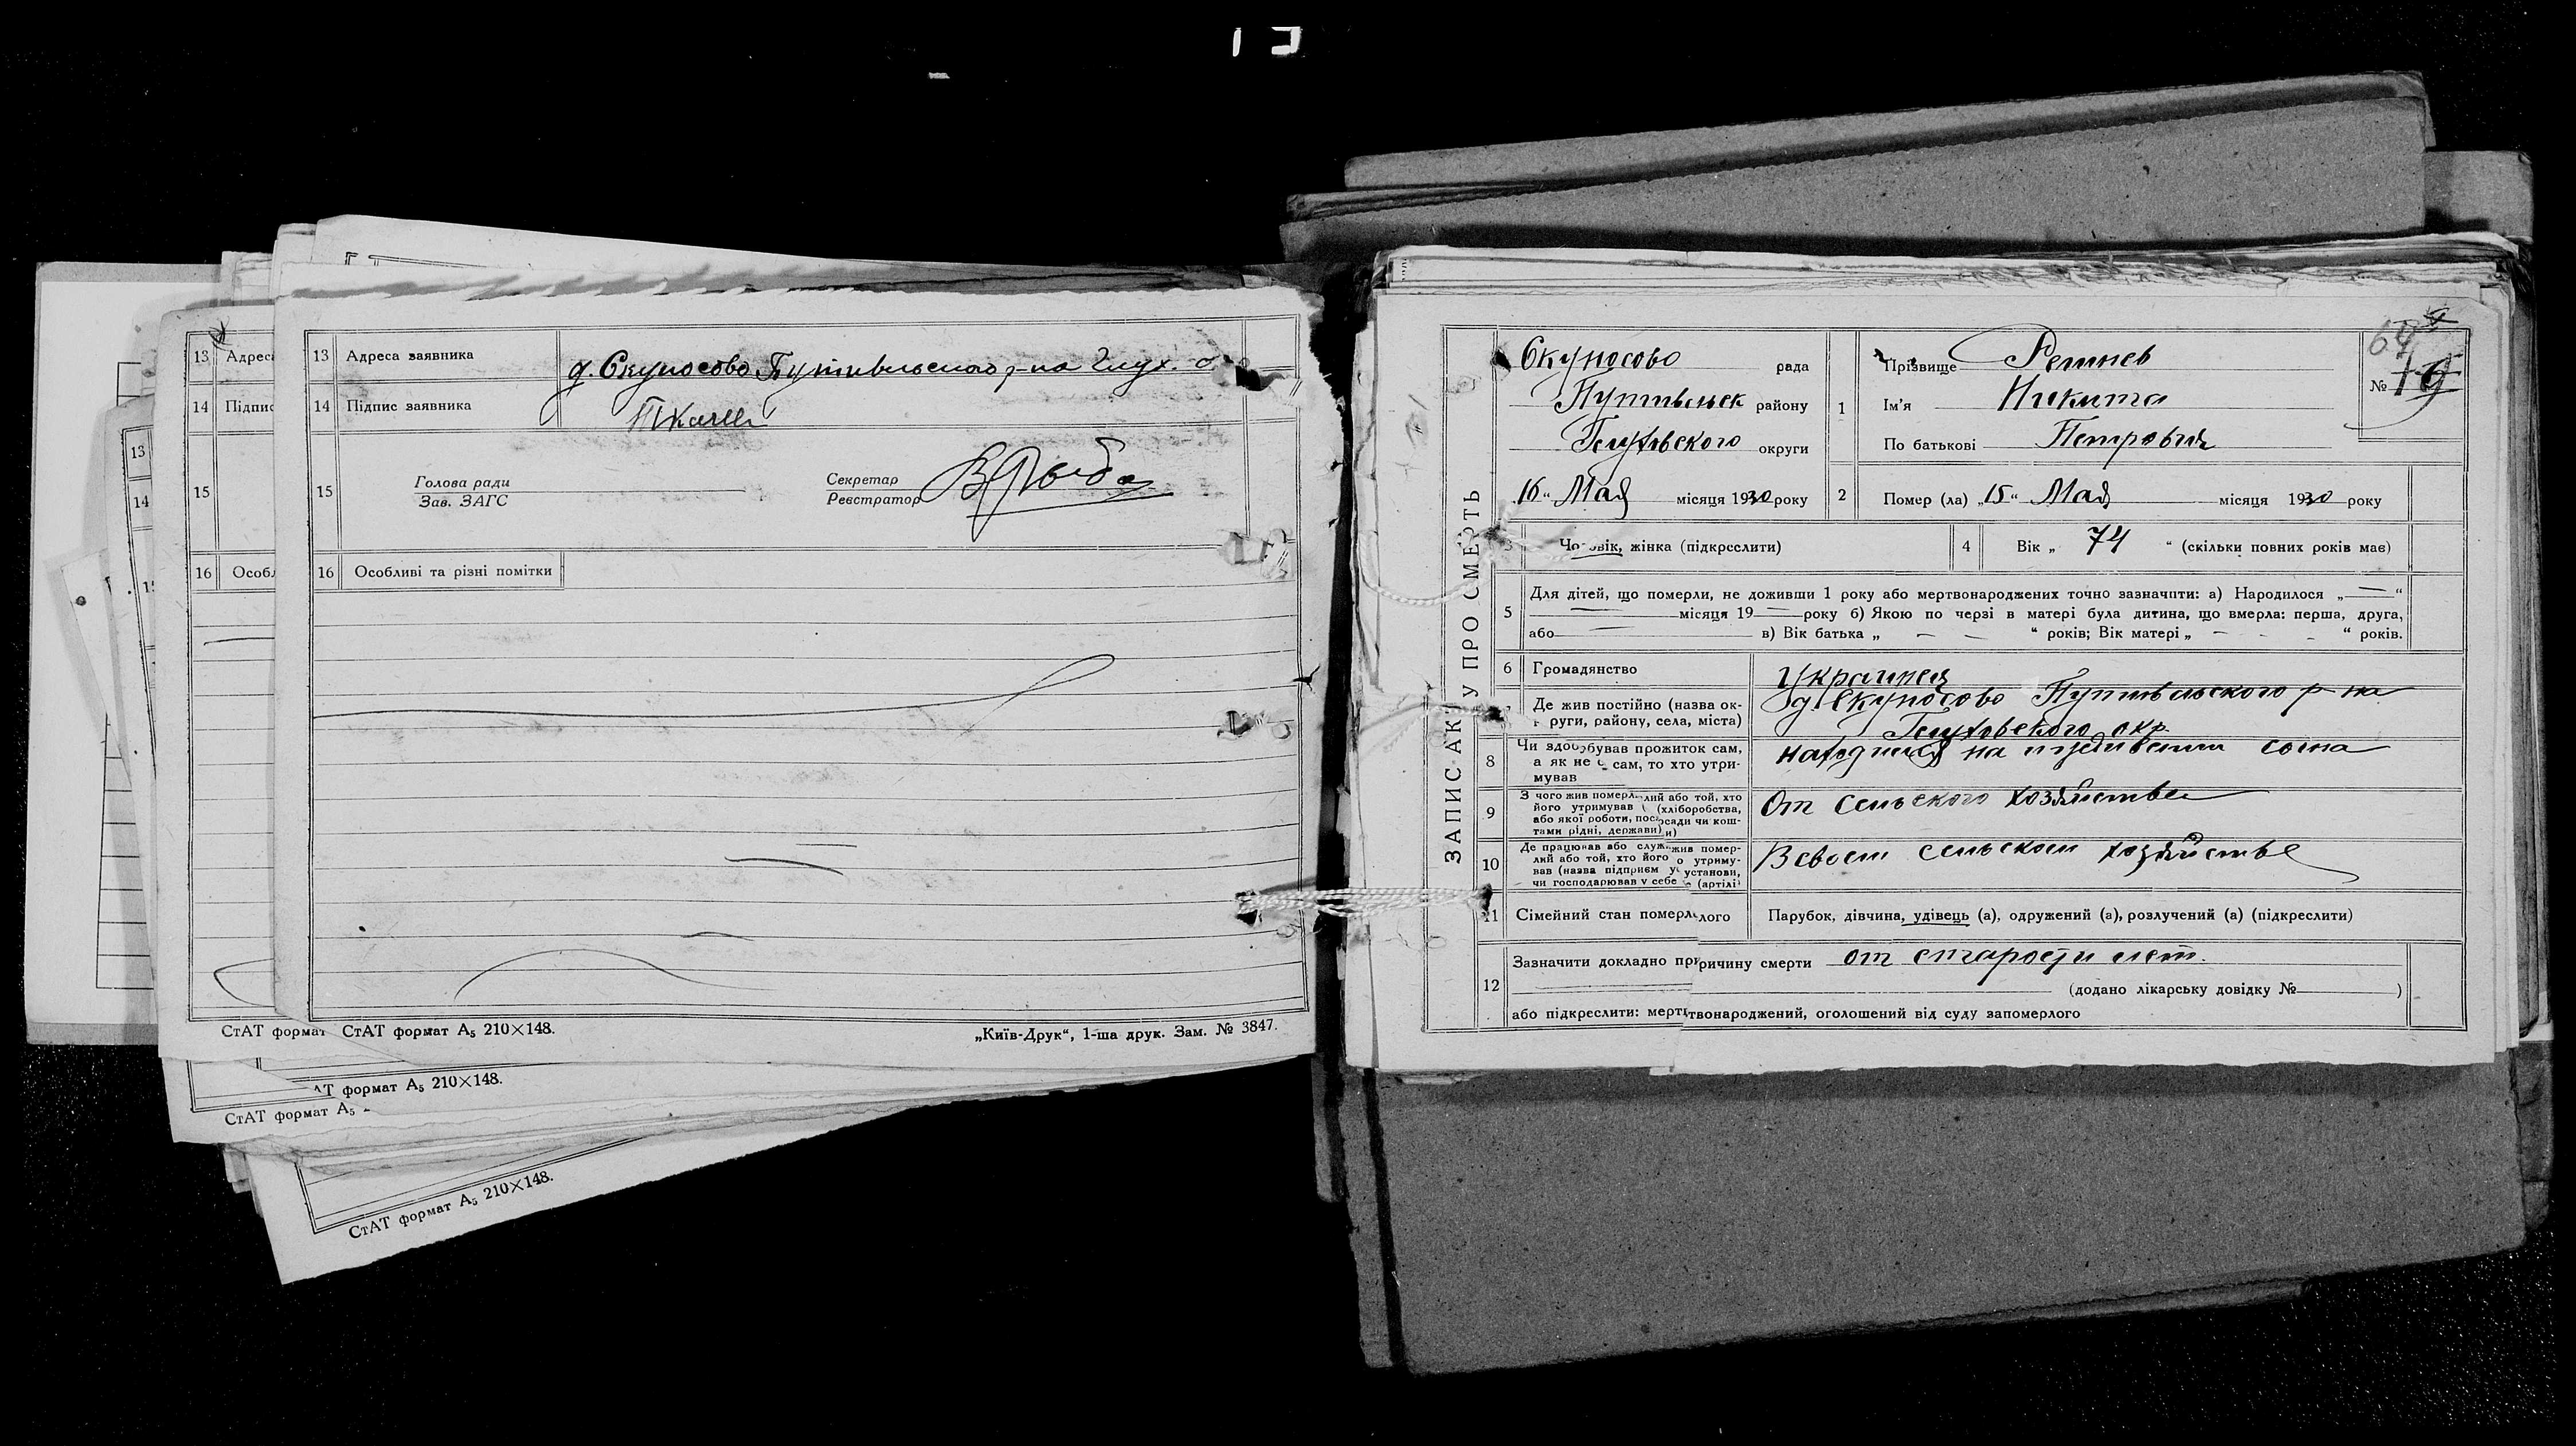 13 Адреса заявника д. Скуносово Путивльского р-на Глух. о.
14 Підпис заявника
15 Голова ради
Зав. ЗАГС
Секретар
Реєстратор
16 Особливі та різні помітки
СтАТ формат А₅ 210×148.
„Київ-Друк“, 1-ша друк. Зам. № 3847.
13 Адрес
14 Підпис
15
16 Особл
СтАТ формат
13
14
АТ формат А₅ 210×148.
СтАТ формат А₅
СтАТ формат А₅ 210×148.
ЗАПИС АКТУ ПРО СМЕРТЬ
Скуносово рада
Путивльск району
Глуховского округи
16 “ Мая місяця 1930 року
1 Прізвище
Ім'я Никита
По батькові Петрович
№ 19
2 Помер (ла) „15“ Мая місяця 1930 року
3 Чоловік, жінка (підкреслити)
4 Вік „ 74 “ (скільки повних років має)
5 Для дітей, що померли, не доживши 1 року або мертвонароджених точно зазначити: а) Народилося „ — “
— місяця 19 — року б) Якою по черзі в матері була дитина, що вмерла: перша, друга,
або — в) Вік батька „ — — “ років; Вік матері „ — - - “ років.
6 Громадянство
7 Де жив постійно (назва ок-
руги, району, села, міста)
д. Скуносово Путивльского р-на
Глуховского окр.
8 Чи здобував прожиток сам,
а як не сам, то хто утри-
мував
находился на иждивении сына
9 З чого жив померлий або той, хто
його утримував (хліборобства,
або якої роботи, посади чи кош-
тами рідні, держави)
От сельского хозяйства
10 Де працював або служив помер-
лий або той, хто його утриму-
вав (назва підприєм установи,
чи господарював у себе (артілі)
В своем сельском хозяйстве
11 Сімейний стан померлого
Парубок, дівчина, удівець (а), одружений (а), розлучений (а) (підкреслити)
12 Зазначити докладно причину смерти от старости лет.
(додано лікарську довідку № )
або підкреслити: мертвонароджений, оголошений від суду запомерлого